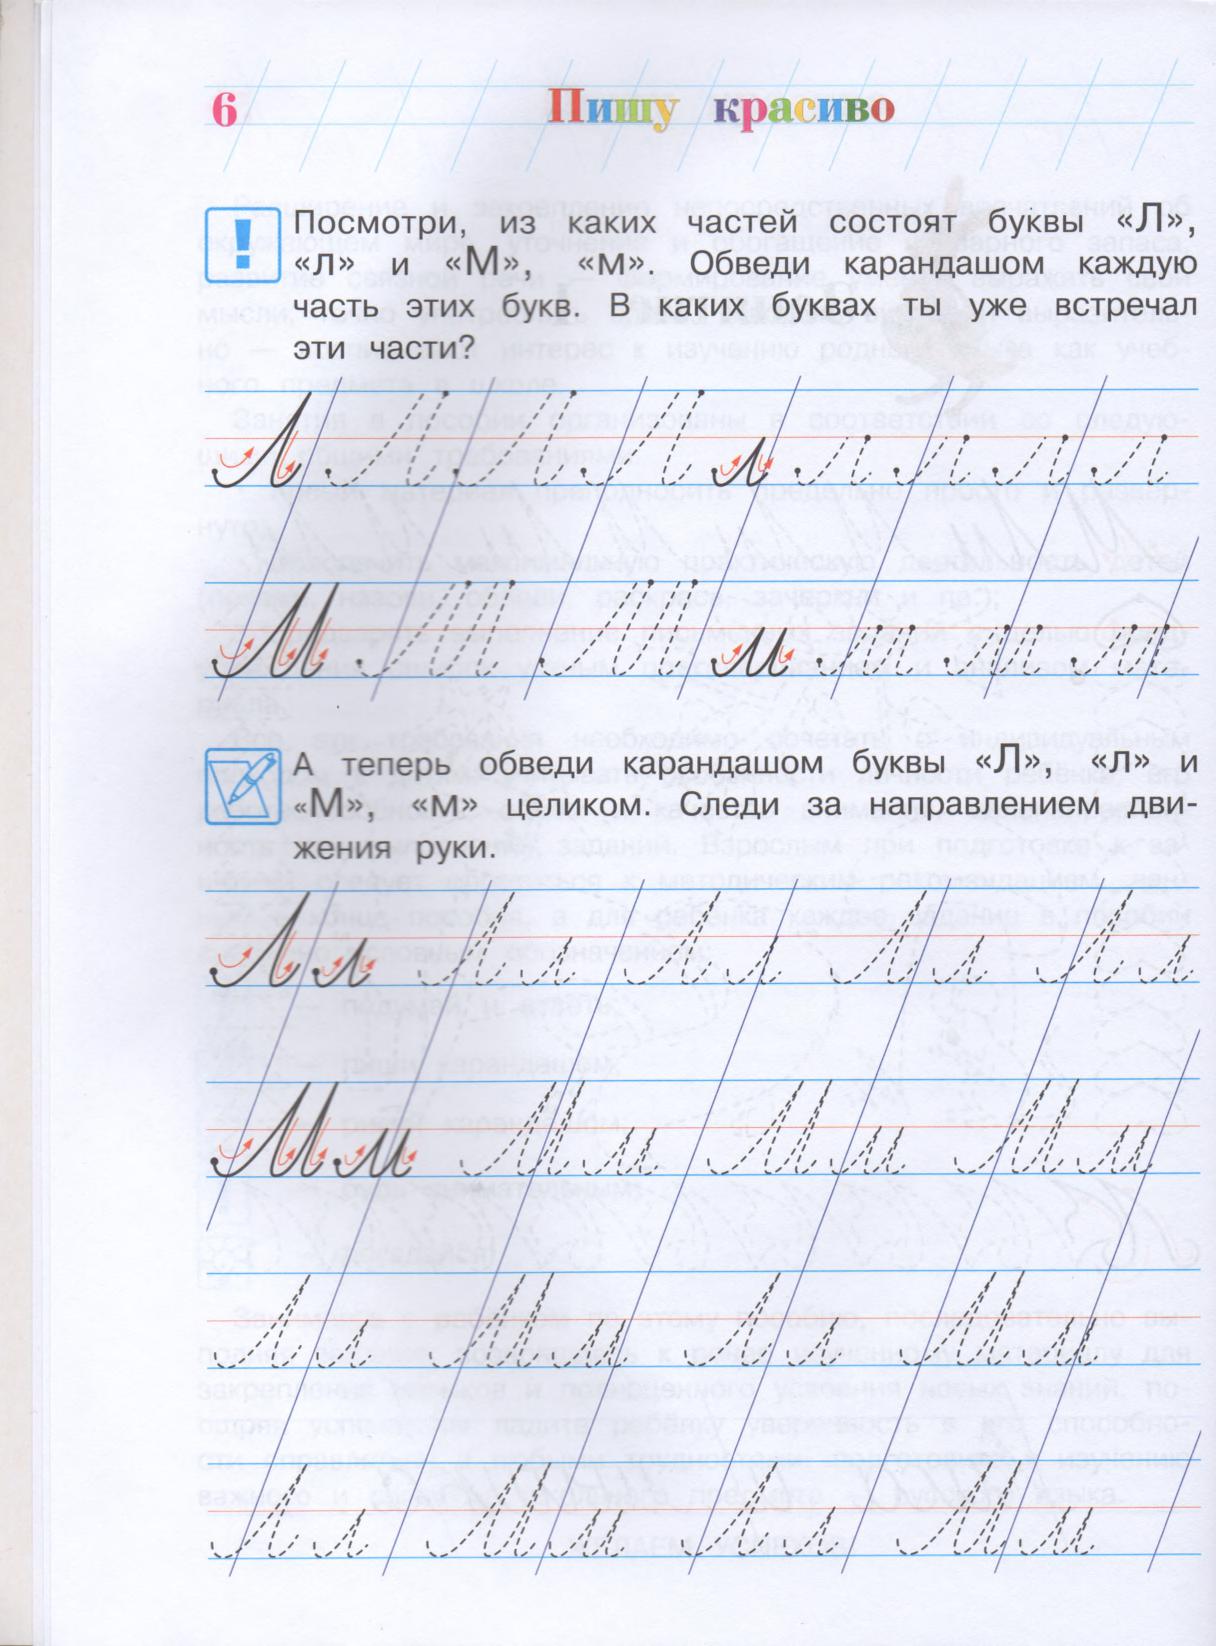 6
Пишу красиво
Посмотри, из каких частей состоят буквы «Л»,
«л» и «М», «м». Обведи карандашом каждую
часть этих букв. В каких буквах ты уже встречал
эти части?
Л Л Л Л л л л л л
М М М м м м м
А теперь обведи карандашом буквы «Л», «л» и
«М», «м» целиком. Следи за направлением дви-
жения руки.
Л л Л л Л л Л л Л л
М м М м М м М м
Л л М м Л л М м
Л л М м Л л М м